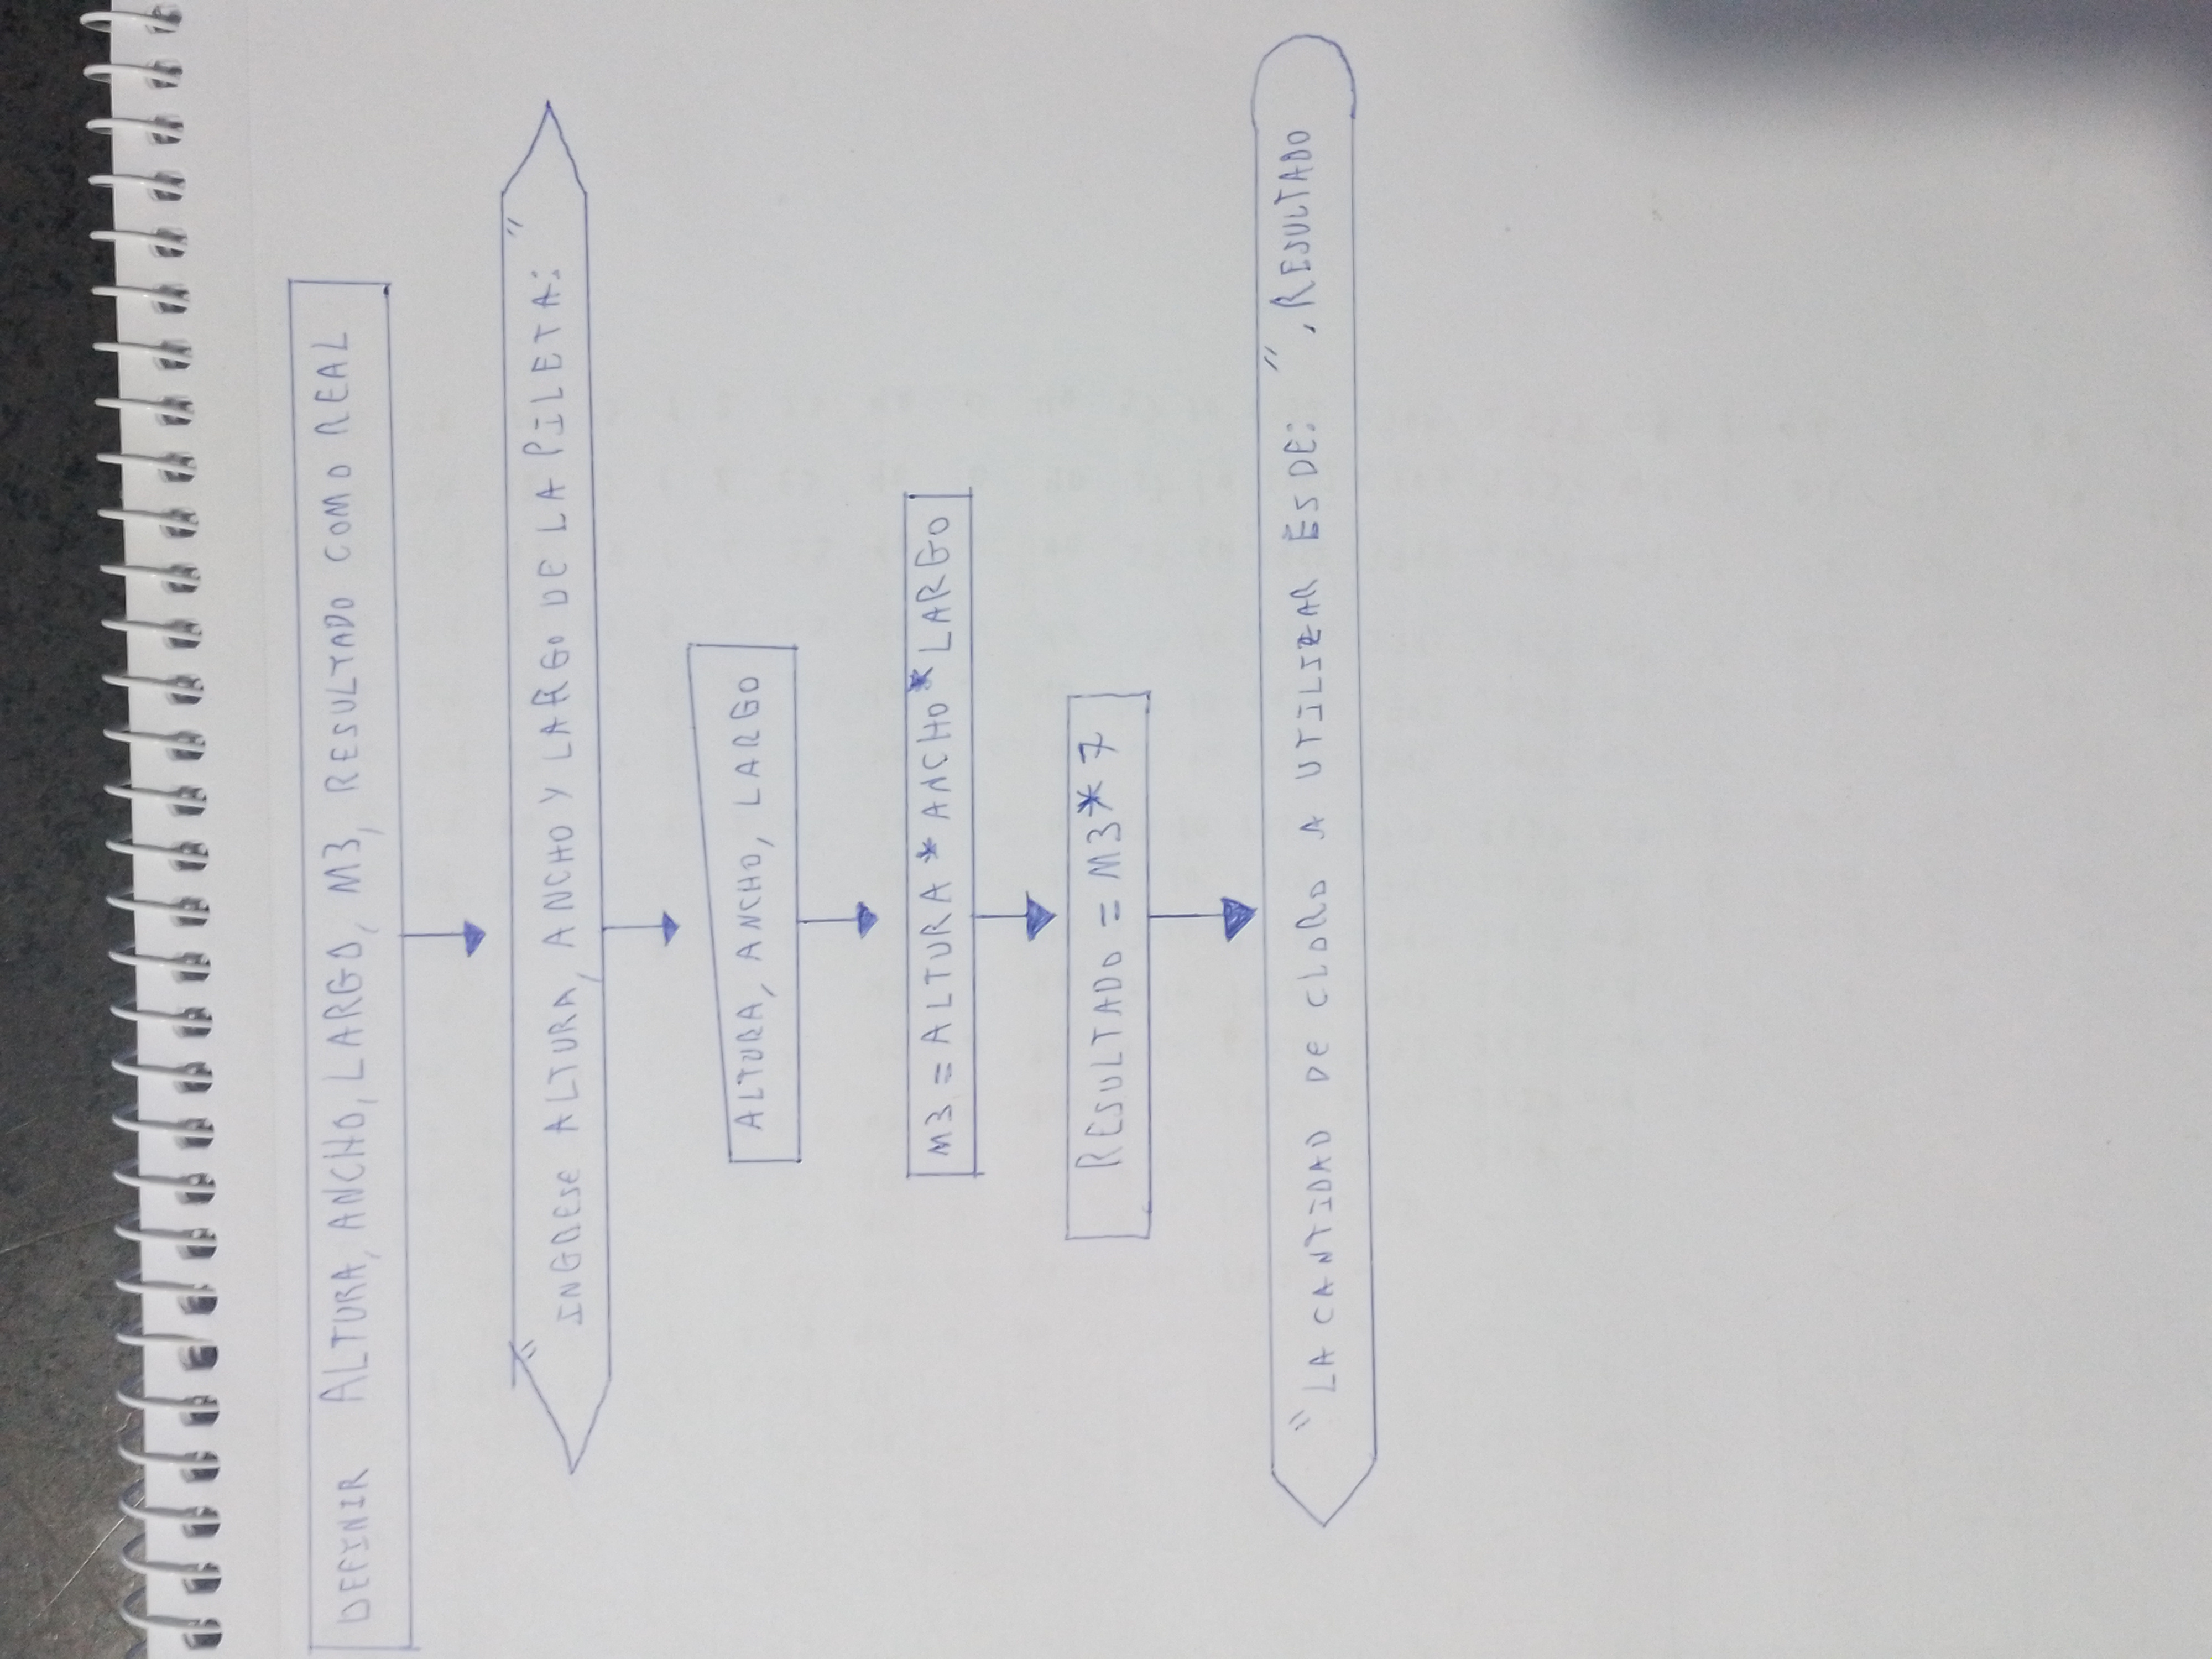 DEFINIR ALTURA, ANCHO, LARGO, M3, RESULTADO COMO REAL
"INGRESE ALTURA, ANCHO Y LARGO DE LA PILETA:"
ALTURA, ANCHO, LARGO
M3 = ALTURA * ANCHO * LARGO
RESULTADO = M3 * 7
"LA CANTIDAD DE CLORO A UTILIZAR ES DE: ", RESULTADO